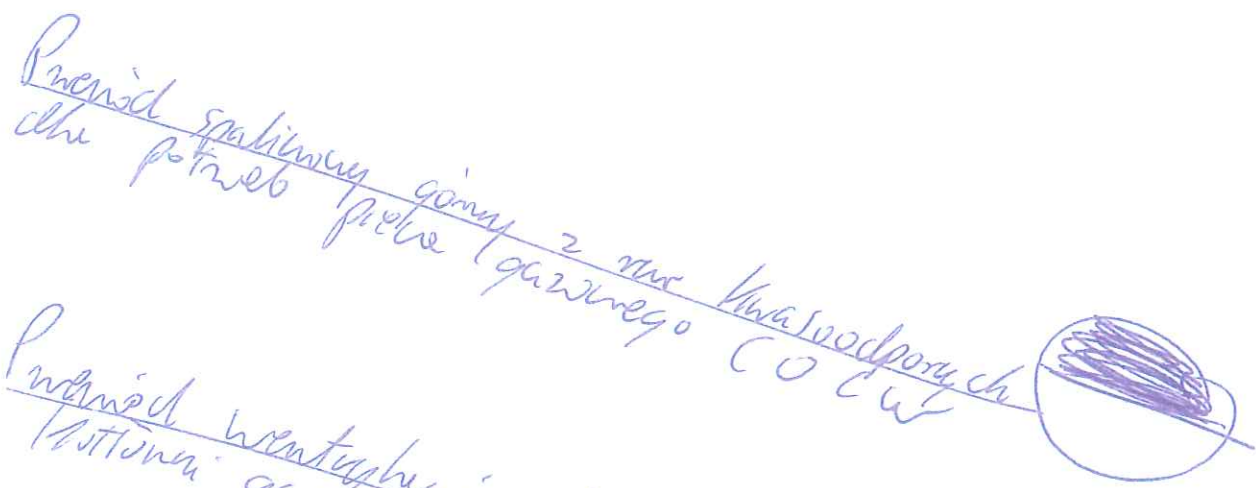 Przewód spalinowy górny z rur kwasoodpornych
dla potrzeb pieca gazowego CO CW
Przewód wentylac
kotłowni ga